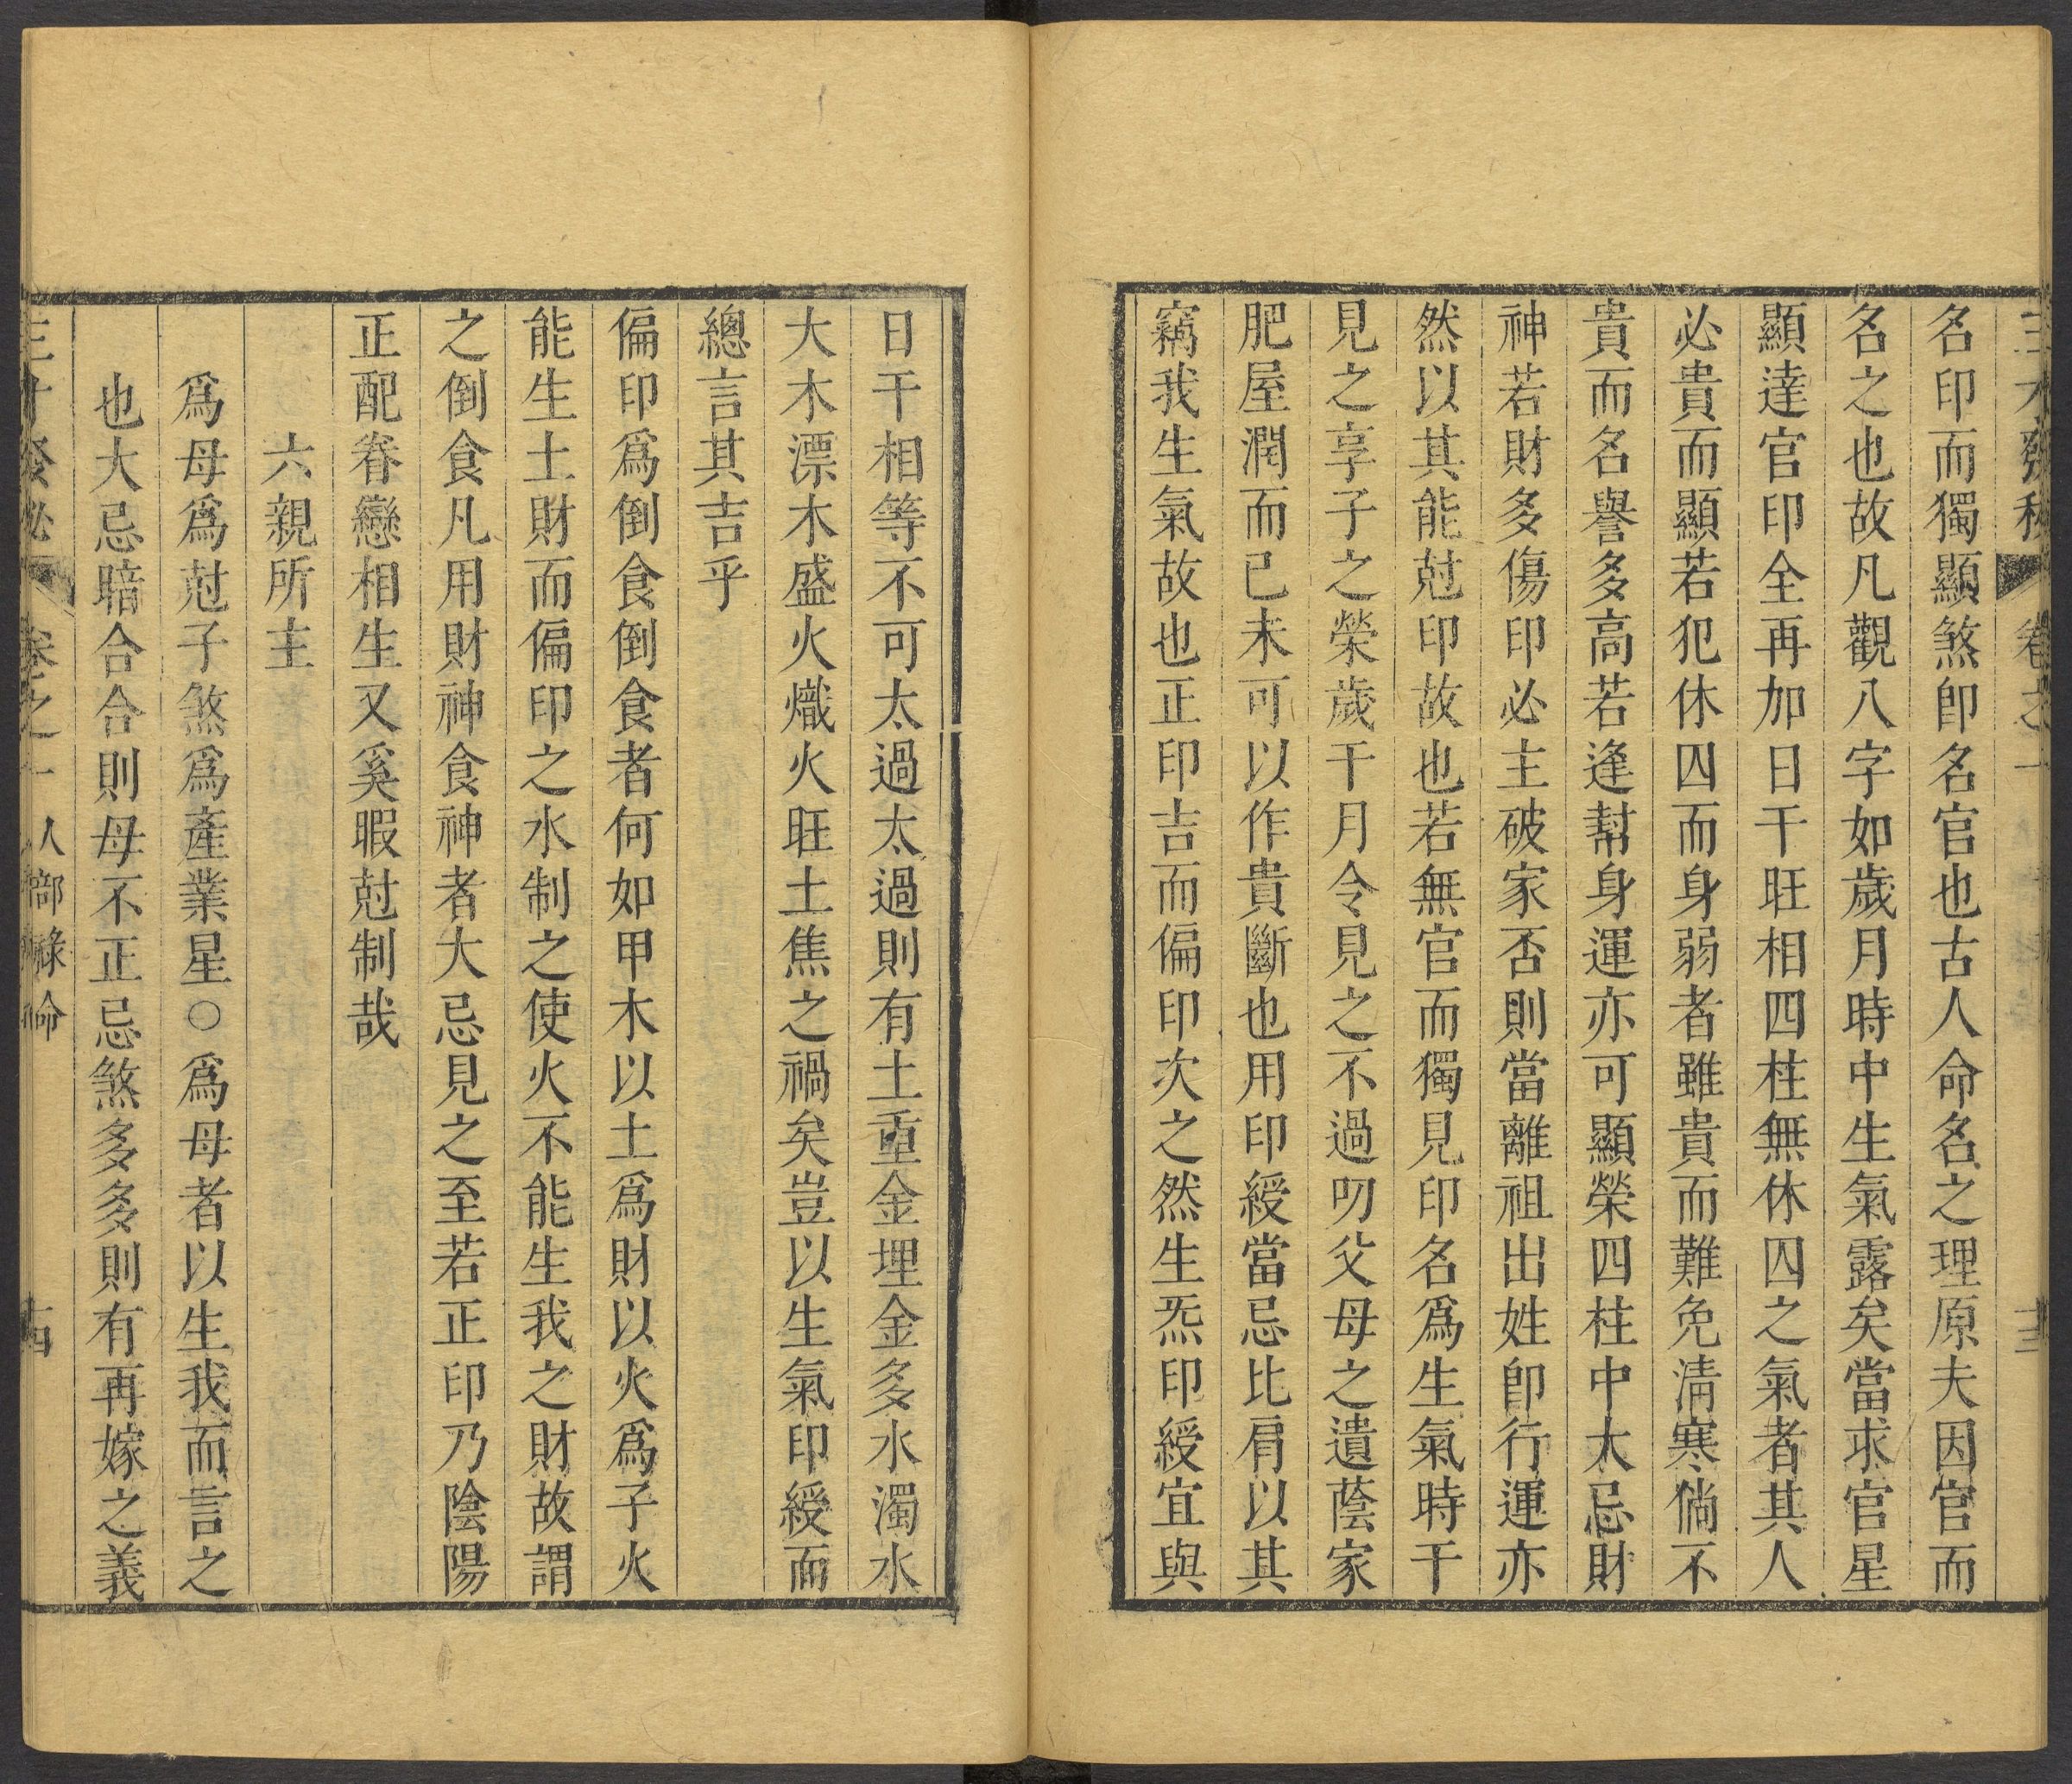 三才發秘 卷之一 十三
名印而獨顯煞卽名官也古人命名之理原夫因官而
名之也故凡觀八字如歲月時中生氣露矣當求官星
顯達官印全再加日干旺相四柱無休囚之氣者其人
必貴而顯若犯休囚而身弱者雖貴而難免淸寒倘不
貴而名譽多高若逢幇身運亦可顯榮四柱中大忌財
神若財多傷印印必主破家否則當離祖出姓卽行運亦
然以其能尅印故也若無官而獨見印名爲生氣時干
見之享子之榮歲干月令見之不過叨父母之遺蔭家
肥屋潤而已未可以作貴斷也用印綬當忌比肩以其
竊我生氣故也正印吉而偏印次之然生炁印綬宜與
日干相等不可太過太過則有土重金埋金多水濁水
大木漂木盛火熾火旺土焦之禍矣豈以生氣印綬而
總言其吉乎
偏印爲倒食倒食者何如甲木以土爲財以火爲子火
能生土財而偏印之水制之使火不能生我之財故謂
之倒食凡用財神食神者大忌見之至若正印乃陰陽
正配眷戀相生又奚暇尅制哉
六親所主
爲母爲尅子煞爲產業星○爲母者以生我而言之
也大忌暗合合則母不正忌煞多多則有再嫁之義
三才發秘 卷之一 人部祿命 十四